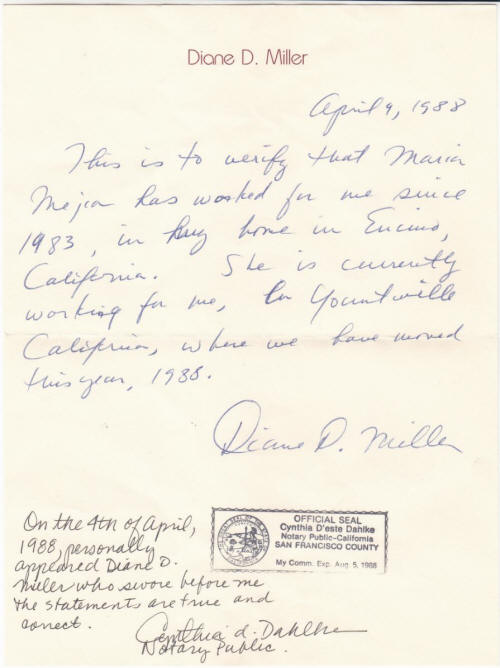 Diane D. Miller
April 9, 1988
This is to verify that Maria
Mejia has worked for me since
1983, in my home in Encino,
California. She is currently
working for me, in Yountville
California, where we have moved
this year, 1988.
Diane D. Miller
On the 4th of April,
1988, personally
appeared Diane D.
Miller who swore before me
the statements are true and
correct.
Cynthia d. Dahlke
Notary Public.
OFFICIAL SEAL
Cynthia D'este Dahlke
Notary Public-California
SAN FRANCISCO COUNTY
My Comm. Exp. Aug. 5, 1988